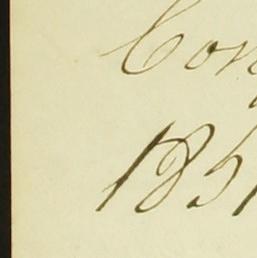 Con
1851